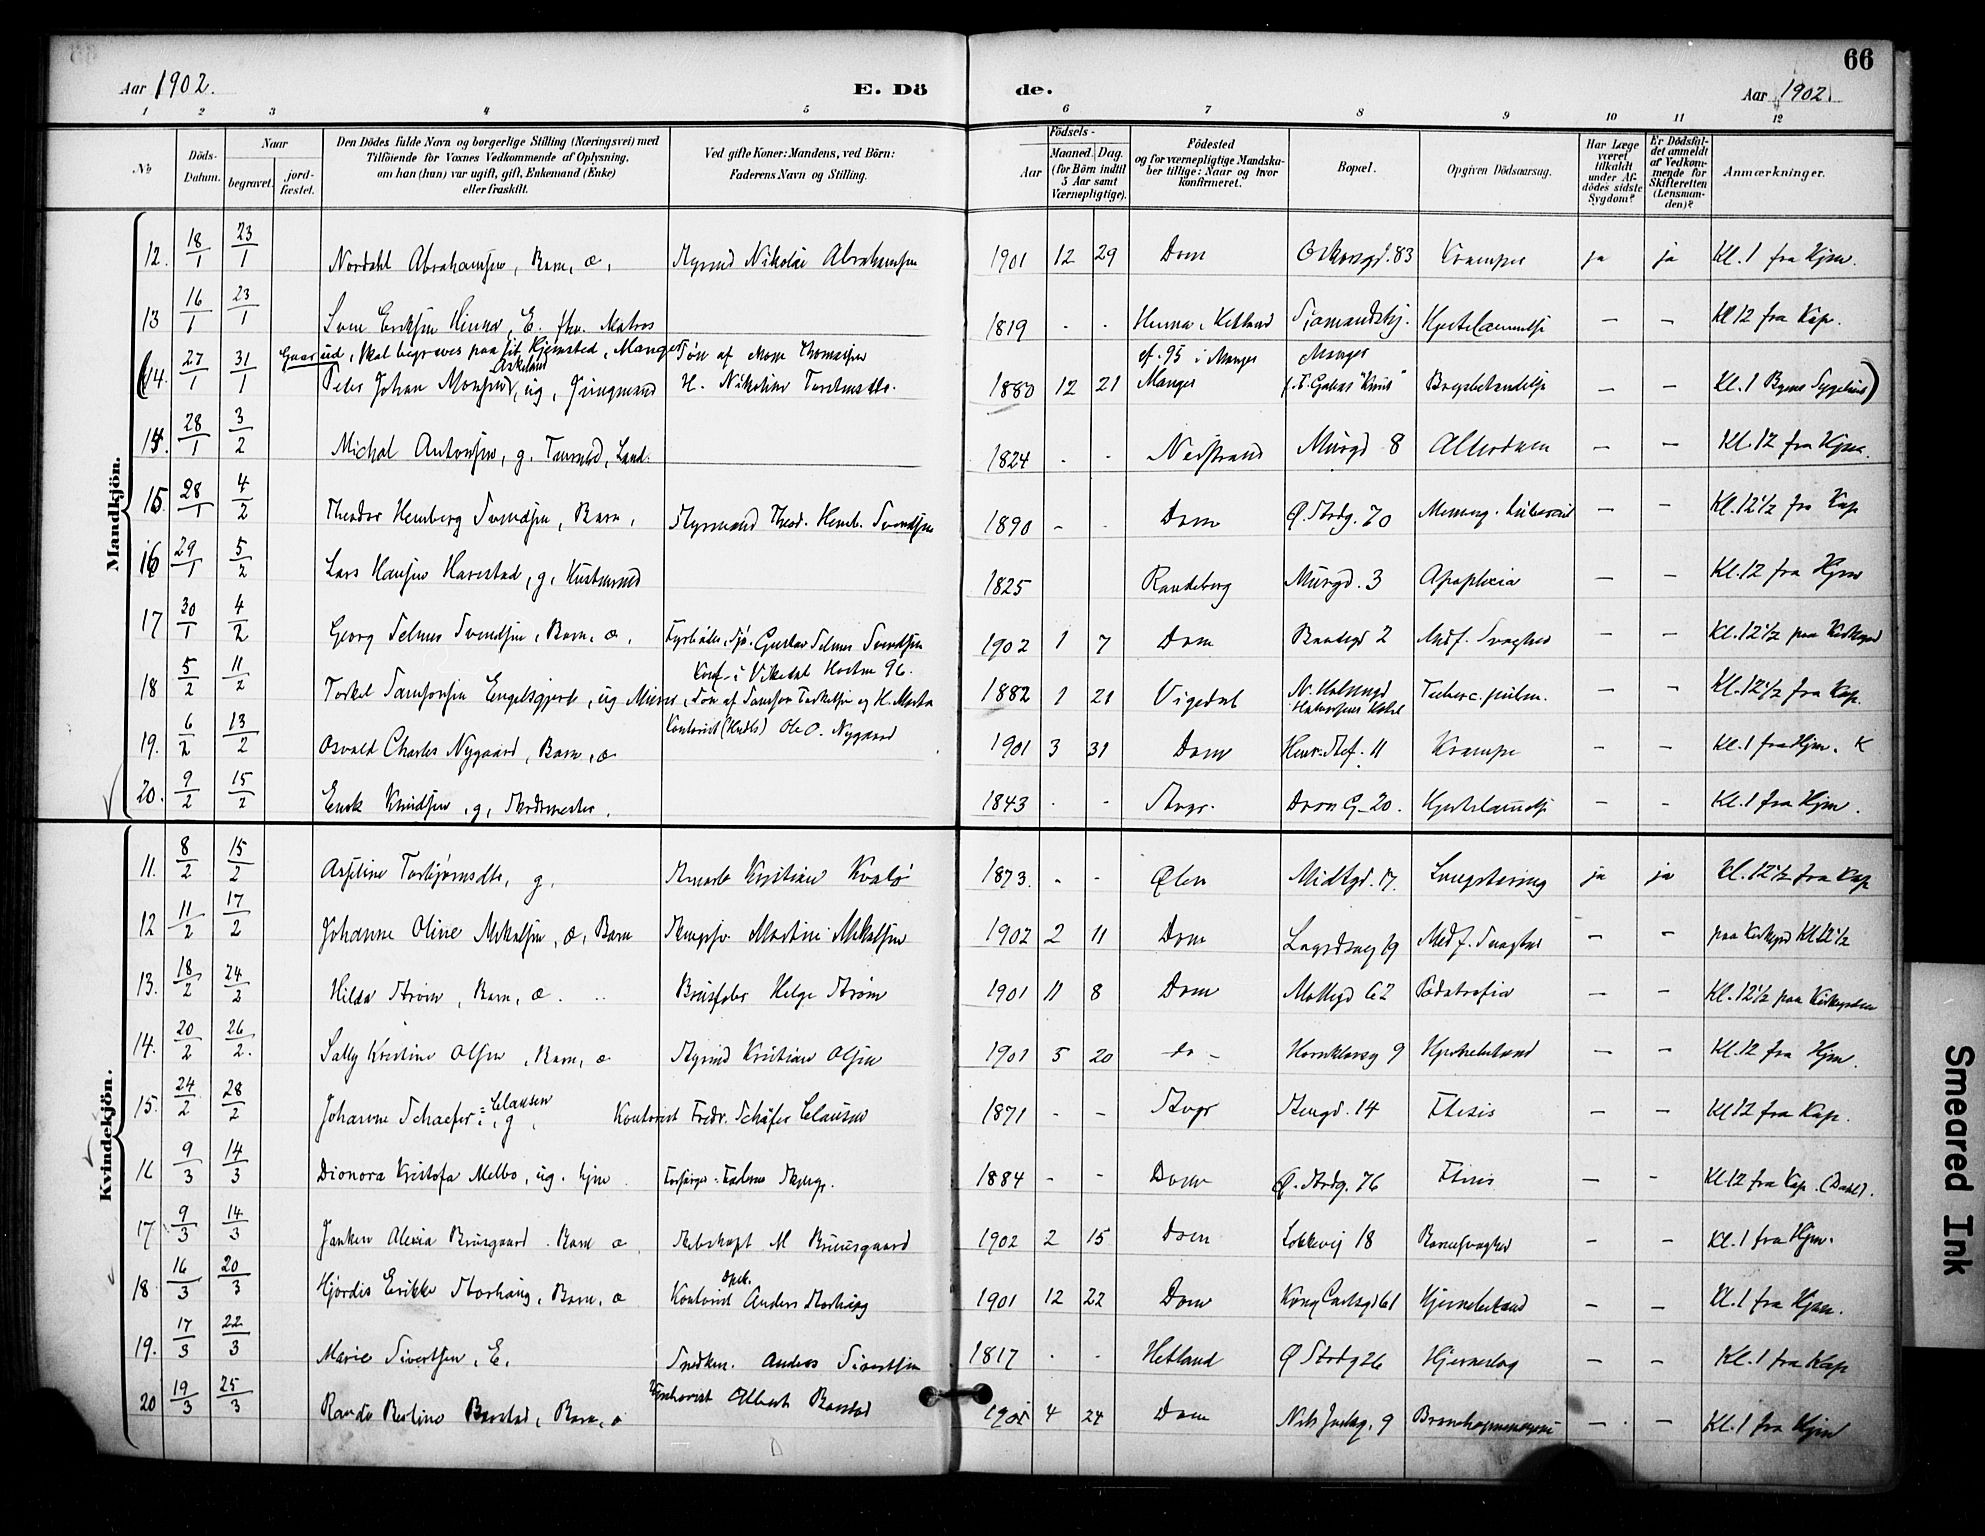 66
Aar 1902. E. Dö de. Aar 1902.
1 2 3 4 5 6 7 8 9 10 11 12
No
Döds-Datum.
Naar
begravet. jord-fæstet.
Den Dödes fulde Navn og borgerlige Stilling (Næringsvei) med Tilföiende for Voxnes Vedkommende af Oplysning, om han (hun) var ugift, gift, Enkemand (Enke) eller fraskilt.
Ved gifte Koner: Mandens, ved Börn: Faderens Navn og Stilling.
Födsels-
Aar Maaned. Dag.
(for Börn indtil 5 Aar samt Værnepligtige).
Födested og for værnepligtige Mandskaber tillige: Naar og hvor konfirmeret.
Bopæl.
Opgiven Dödsaarsag.
Har Læge været tilkaldt under Afdödes sidste Sygdom?
Er Dödsfaldet anmeldt af Vedkommende for Skifteretten (Lensmanden)?
Anmærkninger.
Mandkjön.
12. 18/1 23/1 Nordahl Abrahamsen, Barn, æ, Styrmd Nikolai Abrahamsen 1901 12 29 Dom Oskarsgd. 83 Krampe ja ja Kl. 1 fra Hjm.
13 16/1 23/1 E. fhv. Matros 1819 - - Hinna i Hetland Hjertelammelse — — Kl 12 fra Kap.
Skal begraves paa sit Hjemsted, Manger Søn af Mons Thomassen ef. 95 i Manger Manger
14. 27/1 31/1 Peder Johan Monsen Askeland, ug, Jungmand H. Nikoline 1880 12 21 Manger Brystbetændelse — — Kl. 1 Byens Sygehus)
14. 28/1 3/2 Michal Antonsen, g. 1824 - - Nedstrand Murgd 8 Alderdom — — Kl. 12 fra Hjm.
15 28/1 4/2 Theodor Hemberg Svendsen, Barn, Styrmand Theod. Hemb. Svendsen 1890 - - Dom Ø. Strdg. 70 — — Kl. 12½ fra Kap
16 29/1 5/2 Lars Hansen Harestad, g, 1825 Randeberg Murgd. 3 Apoplexia — — Kl. 12 fra Hjm
17 30/1 4/2 Georg Selmer Svendsen, Barn, æ, Fyrbøder, Gustav Selmer Svendsen 1902 1 7 Dom 2 Medf. Svaghed — — Kl. 12½ paa Kirkegrd
Konf. i Vikedal Høsten 96.
18 5/2 11/2 Torkel Samsonsen Engelsgjerd, ug Murer, Søn af Samson Torkelsen og H. Marta 1882 1 21 Vigedal Tuberc. pulm. — — Kl. 12½ fra Kap.
19. 6/2 13/2 Osvald Charles Nygaard, Barn, æ Kontorist (Hndls) Ole O. Nygaard 1901 3 31 Dom Henr. Stef. 11 Krampe — — Kl. 1 fra Hjm. K
20. 9/2 15/2 Knudsen, g, 1843 - - Stvgr. Dron G. 20. Hjertelammelse — — Kl. 1 fra Hjm.
Kvindekjön.
11. 8/2 15/2 Asseline Torbjørnsdtr, g, Kristian Kvalø 1873. - - Ølen Midtgd. 17. Lungetæring ja ja Kl. 12½ fra Kap
12 11/2 17/2 Johanne Oline Mikalsen, æ, Barn Martin Mikalsen 1902 2 11 Dom Lagårdsveg 19 Medf. Svaghed — — paa Kirkegrd Kl 12½
13. 18/2 24/2 Hilda Strøm, Barn, æ. Helge Strøm 1901 11 8 Dom Møllegd 62 Pædatrofia — — Kl. 12½ paa Kirkegården
14. 20/2 26/2. Sally Kristine Olsen, Barn, æ Styrmd Kristian Olsen 1901 5 20 do - 9 — — Kl. 12 fra Hjm.
15. 24/2 28/2 Johanne Schaefer = Clausen, g, Kontorist Fredr. Schäfer Clausen 1871 - - Stvgr Stengd. 14 Ftisis — — Kl 12 fra Kap.
16 9/3 14/3 Dionora Kristofa Melbo, ug. hjm 1884 - - Dom Ø. Strdg. 76 Ftisis — — Kl 12 fra Kap. (Dahl).
17 9/3 14/3 Janken Alexia Bruusgaard. Barn æ Skibskapt M Bruusgaard 1902 2 15 Dom Løkkevej 18 Barnesvaghed — — Kl. 1 fra Hjm.
18. 16/3 20/3 Hjørdis Erikke Storhaug, Barn, æ Kontorist Anders Storhaug 1901 12 22 Dom Kong Carlsgd 61 Hjernebetænd — — Kl. 1 fra Hjm.
19. 17/3 22/3 Marie Sivertsen, E. Snedker. Anders Sivertsen 1817 - - Hetland Ø Strdg 26 Hjerneslag — — Kl. 1 fra Kap
20 19/3 25/3 Bertine Barstad, Barn, æ Albert Barstad 4 24 Dom Nils Juelsg. 9 — — Kl. 1 fra Hjm
Smeared Ink